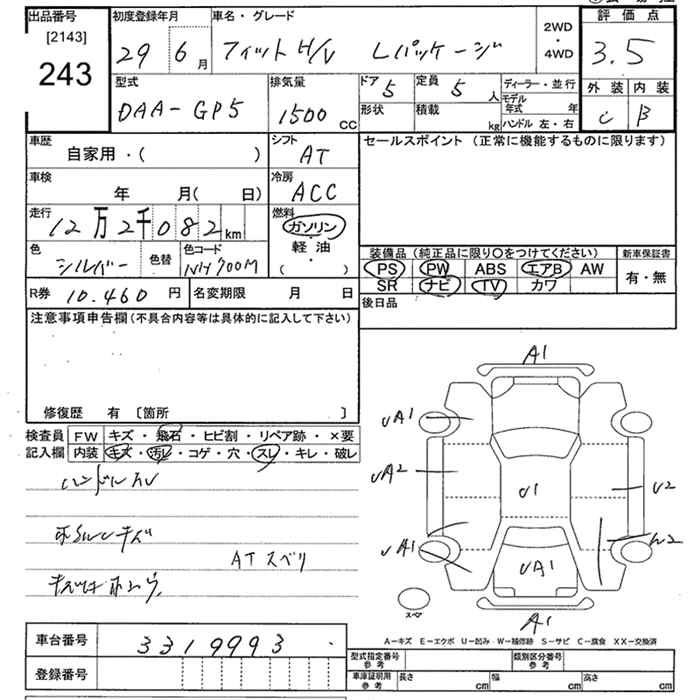 出品番号
[2143]
243
初度登録年月
29 6 月
車名・グレード
フィットH/V Lパッケージ
2WD
・
4WD
評価点
3.5
外装 内装
C B
型式
DAA-GP5
排気量
1500 cc
ドア 5
形状
定員 5 人
積載 kg
ディーラー・並行
モデル年式 年
ハンドル 左・右
車歴
自家用・( )
シフト
AT
セールスポイント (正常に機能するものに限ります)
車検
年 月( 日)
冷房
ACC
走行
12万2千082km
燃料
ガソリン
軽油
( ・ )
色
シルバー
色替
色コード
NH700M
装備品 (純正品に限り○をつけてください)
PS PW ABS エアB AW
SR ナビ TV カワ
新車保証書
有・無
R券 10.460 円
名変期限 月 日
後日品
注意事項申告欄(不具合内容等は具体的に記入して下さい)
修復歴 有 〔箇所 〕
検査員
記入欄
FW キズ・飛石・ヒビ割・リペア跡・×要
内装 キズ・汚レ・コゲ・穴・スレ・キレ・破レ
ハンドルスレ
キズ
ATスベリ
A1
UA1
UA2
U1
U2
UA1
W2
UA1
スペア
A1
A-キズ E-エクボ U-凹み W-補修跡 S-サビ C-腐食 XX-交換済
車台番号 3319993
登録番号
型式指定番号
参考
類別区分番号
参考
車庫証明用
参考
長さ cm 幅 cm 高さ cm